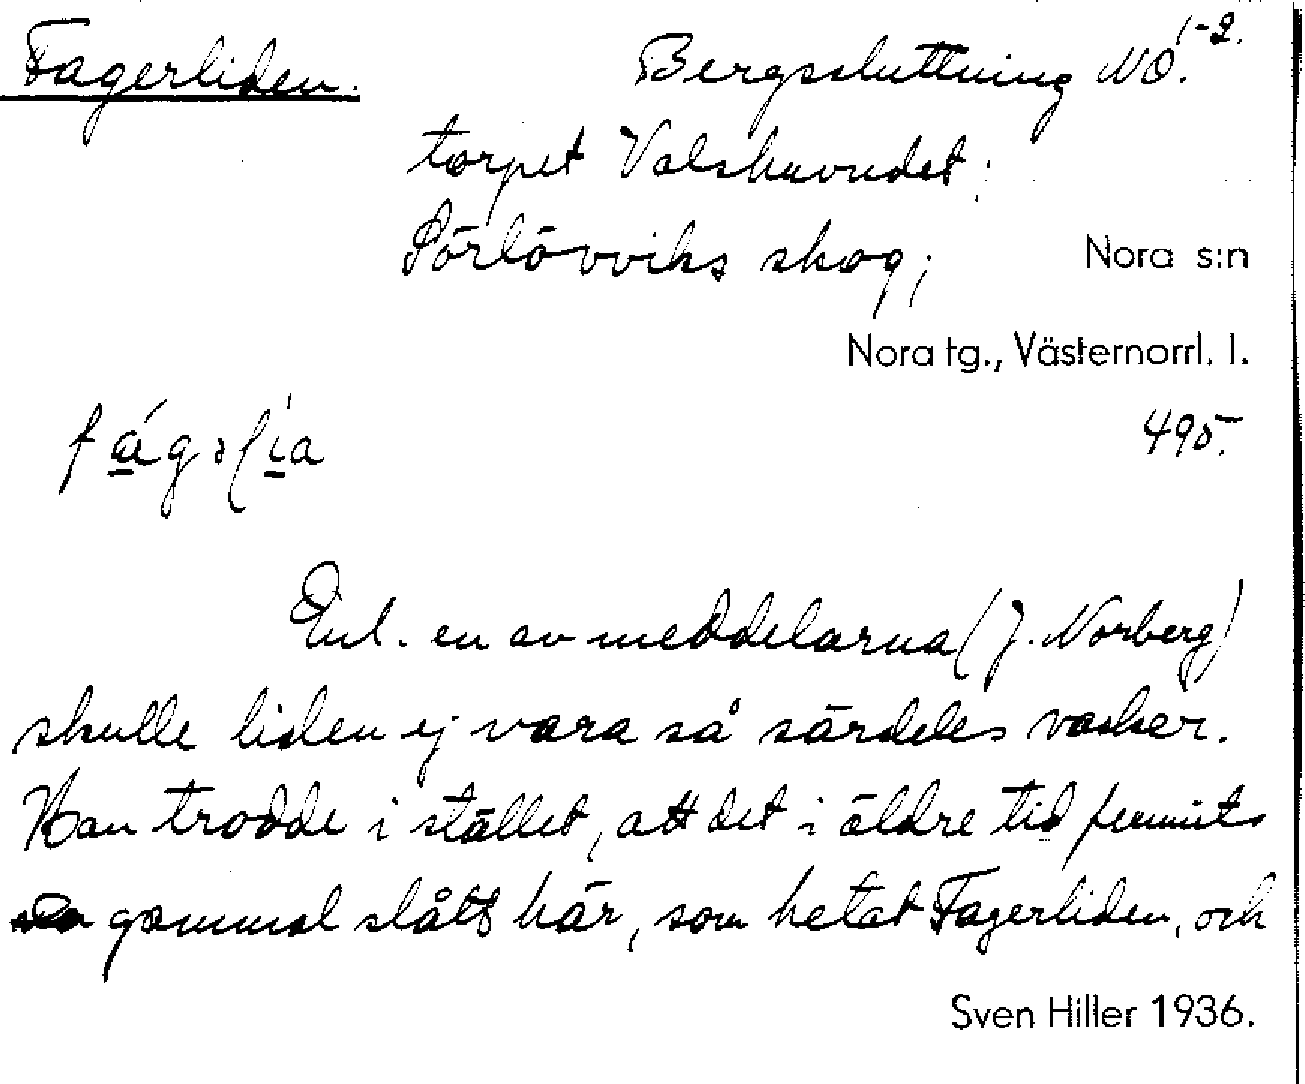 Fagerliden. Bergssluttning NO. 1-2.
torpet Valshuvudet;
Pörlövviks skog; Nora s:n
Nora tg., Västernorrl. l.
495.
Enl. en av meddelarna (J. Norberg)
skulle liden ej vara så särdeles vacker.
Han trodde i stället, att det i äldre tid funnits
gammal slått här, som hetat Fagerliden, och
Sven Hiller 1936.